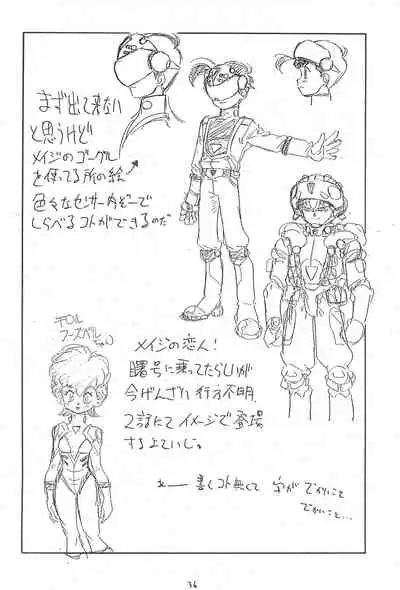 まず出て来ない
と思うけど
メイジのゴーグル
を使ってる所の絵
色々なセンサー内ぞーで
しらべるコトができるのだ
チロル
フースベルちゃん
メイジの恋人!
曙号に乗ってたらしいが
今げんざい行方不明
2話にてイメージで登場
するよていじゃ。
え── 書くコト無くて 字が でかいこと
でかいこと…
36